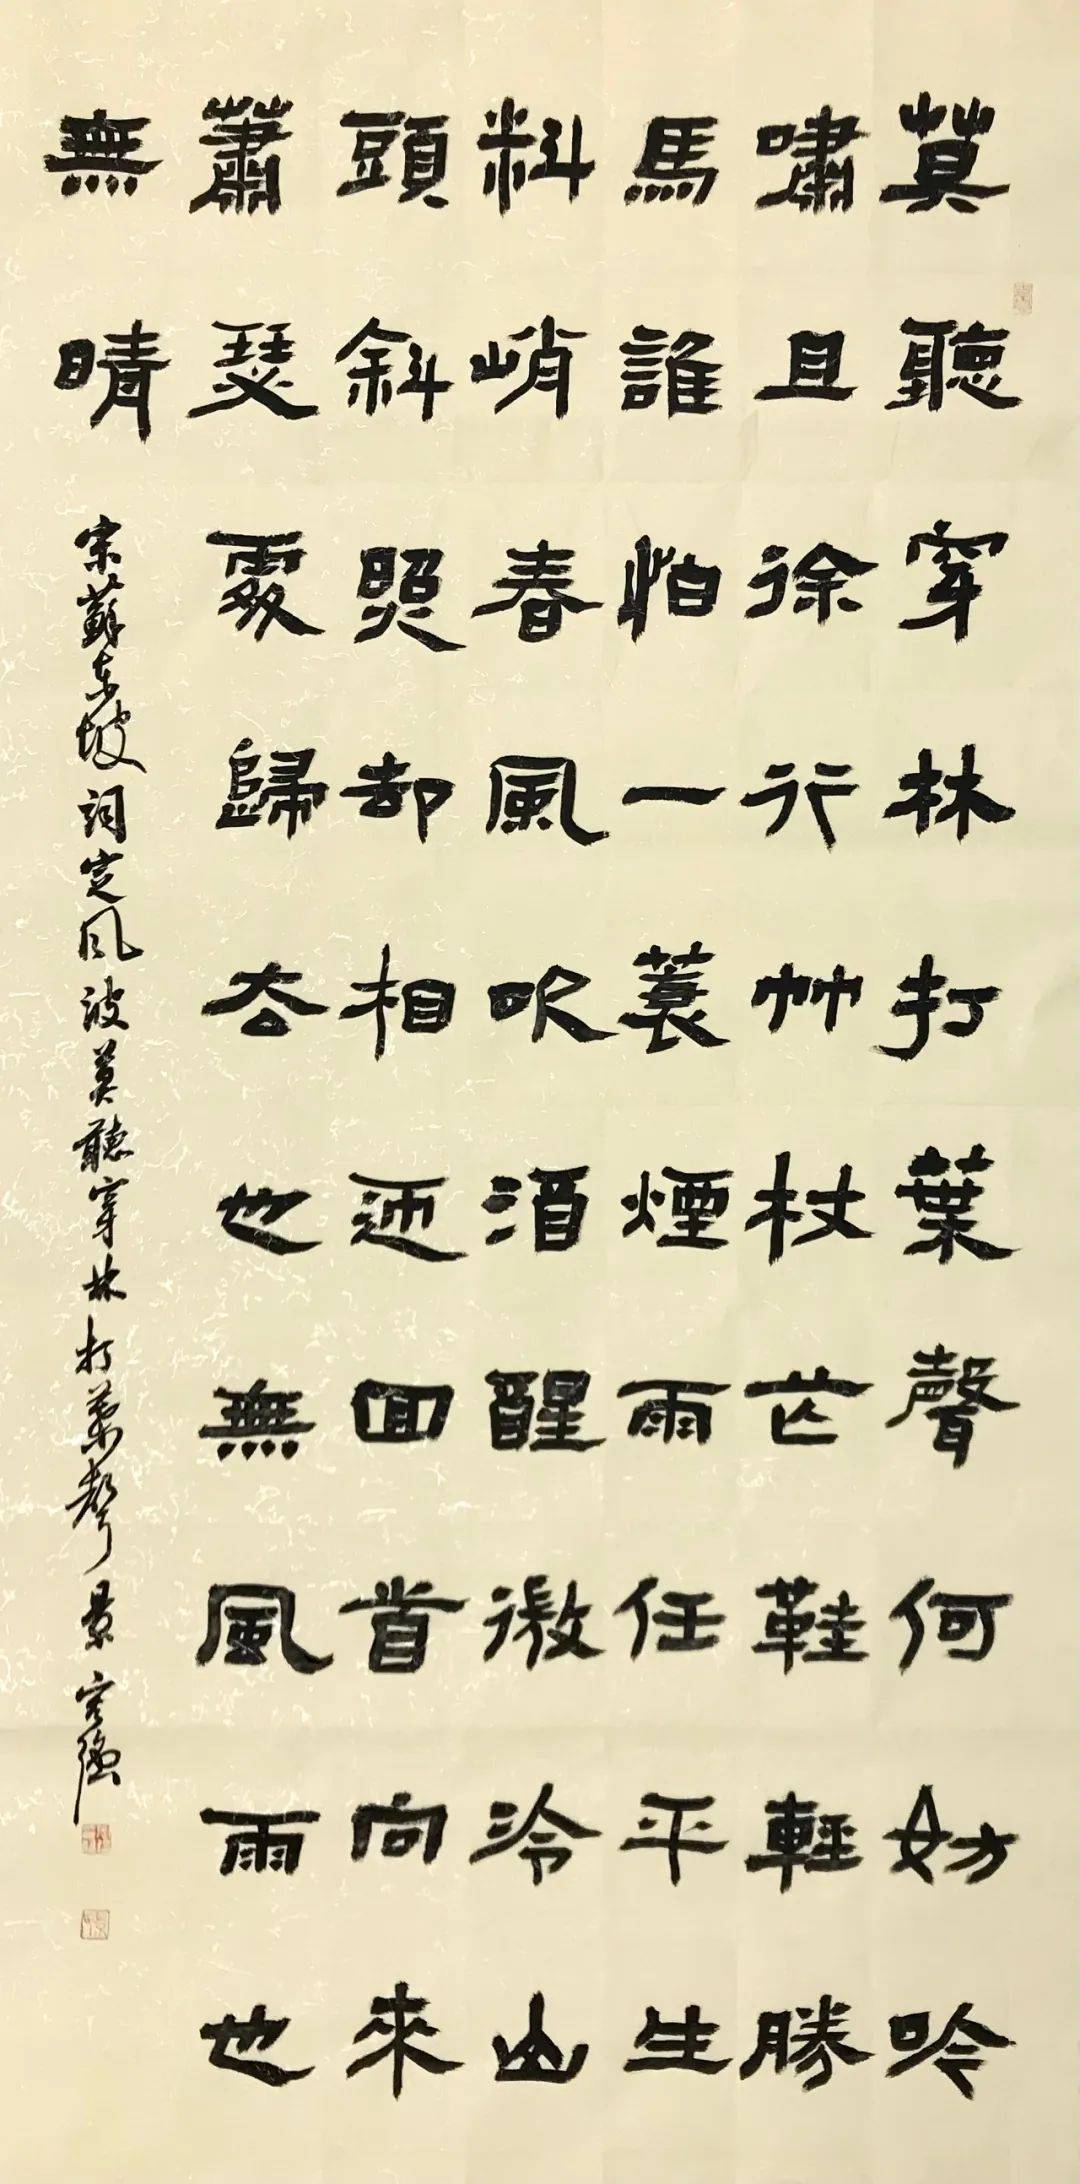 莫聽穿林打葉聲何妨吟
嘯且徐行竹杖芒鞋輕勝
馬誰怕一蓑煙雨任平生
料峭春風吹酒醒微冷山
頭斜照却相迎回首向來
蕭瑟處歸去也無風雨也
無晴
宋蘇東坡詞定風波莫聽穿林打葉聲 景宏強